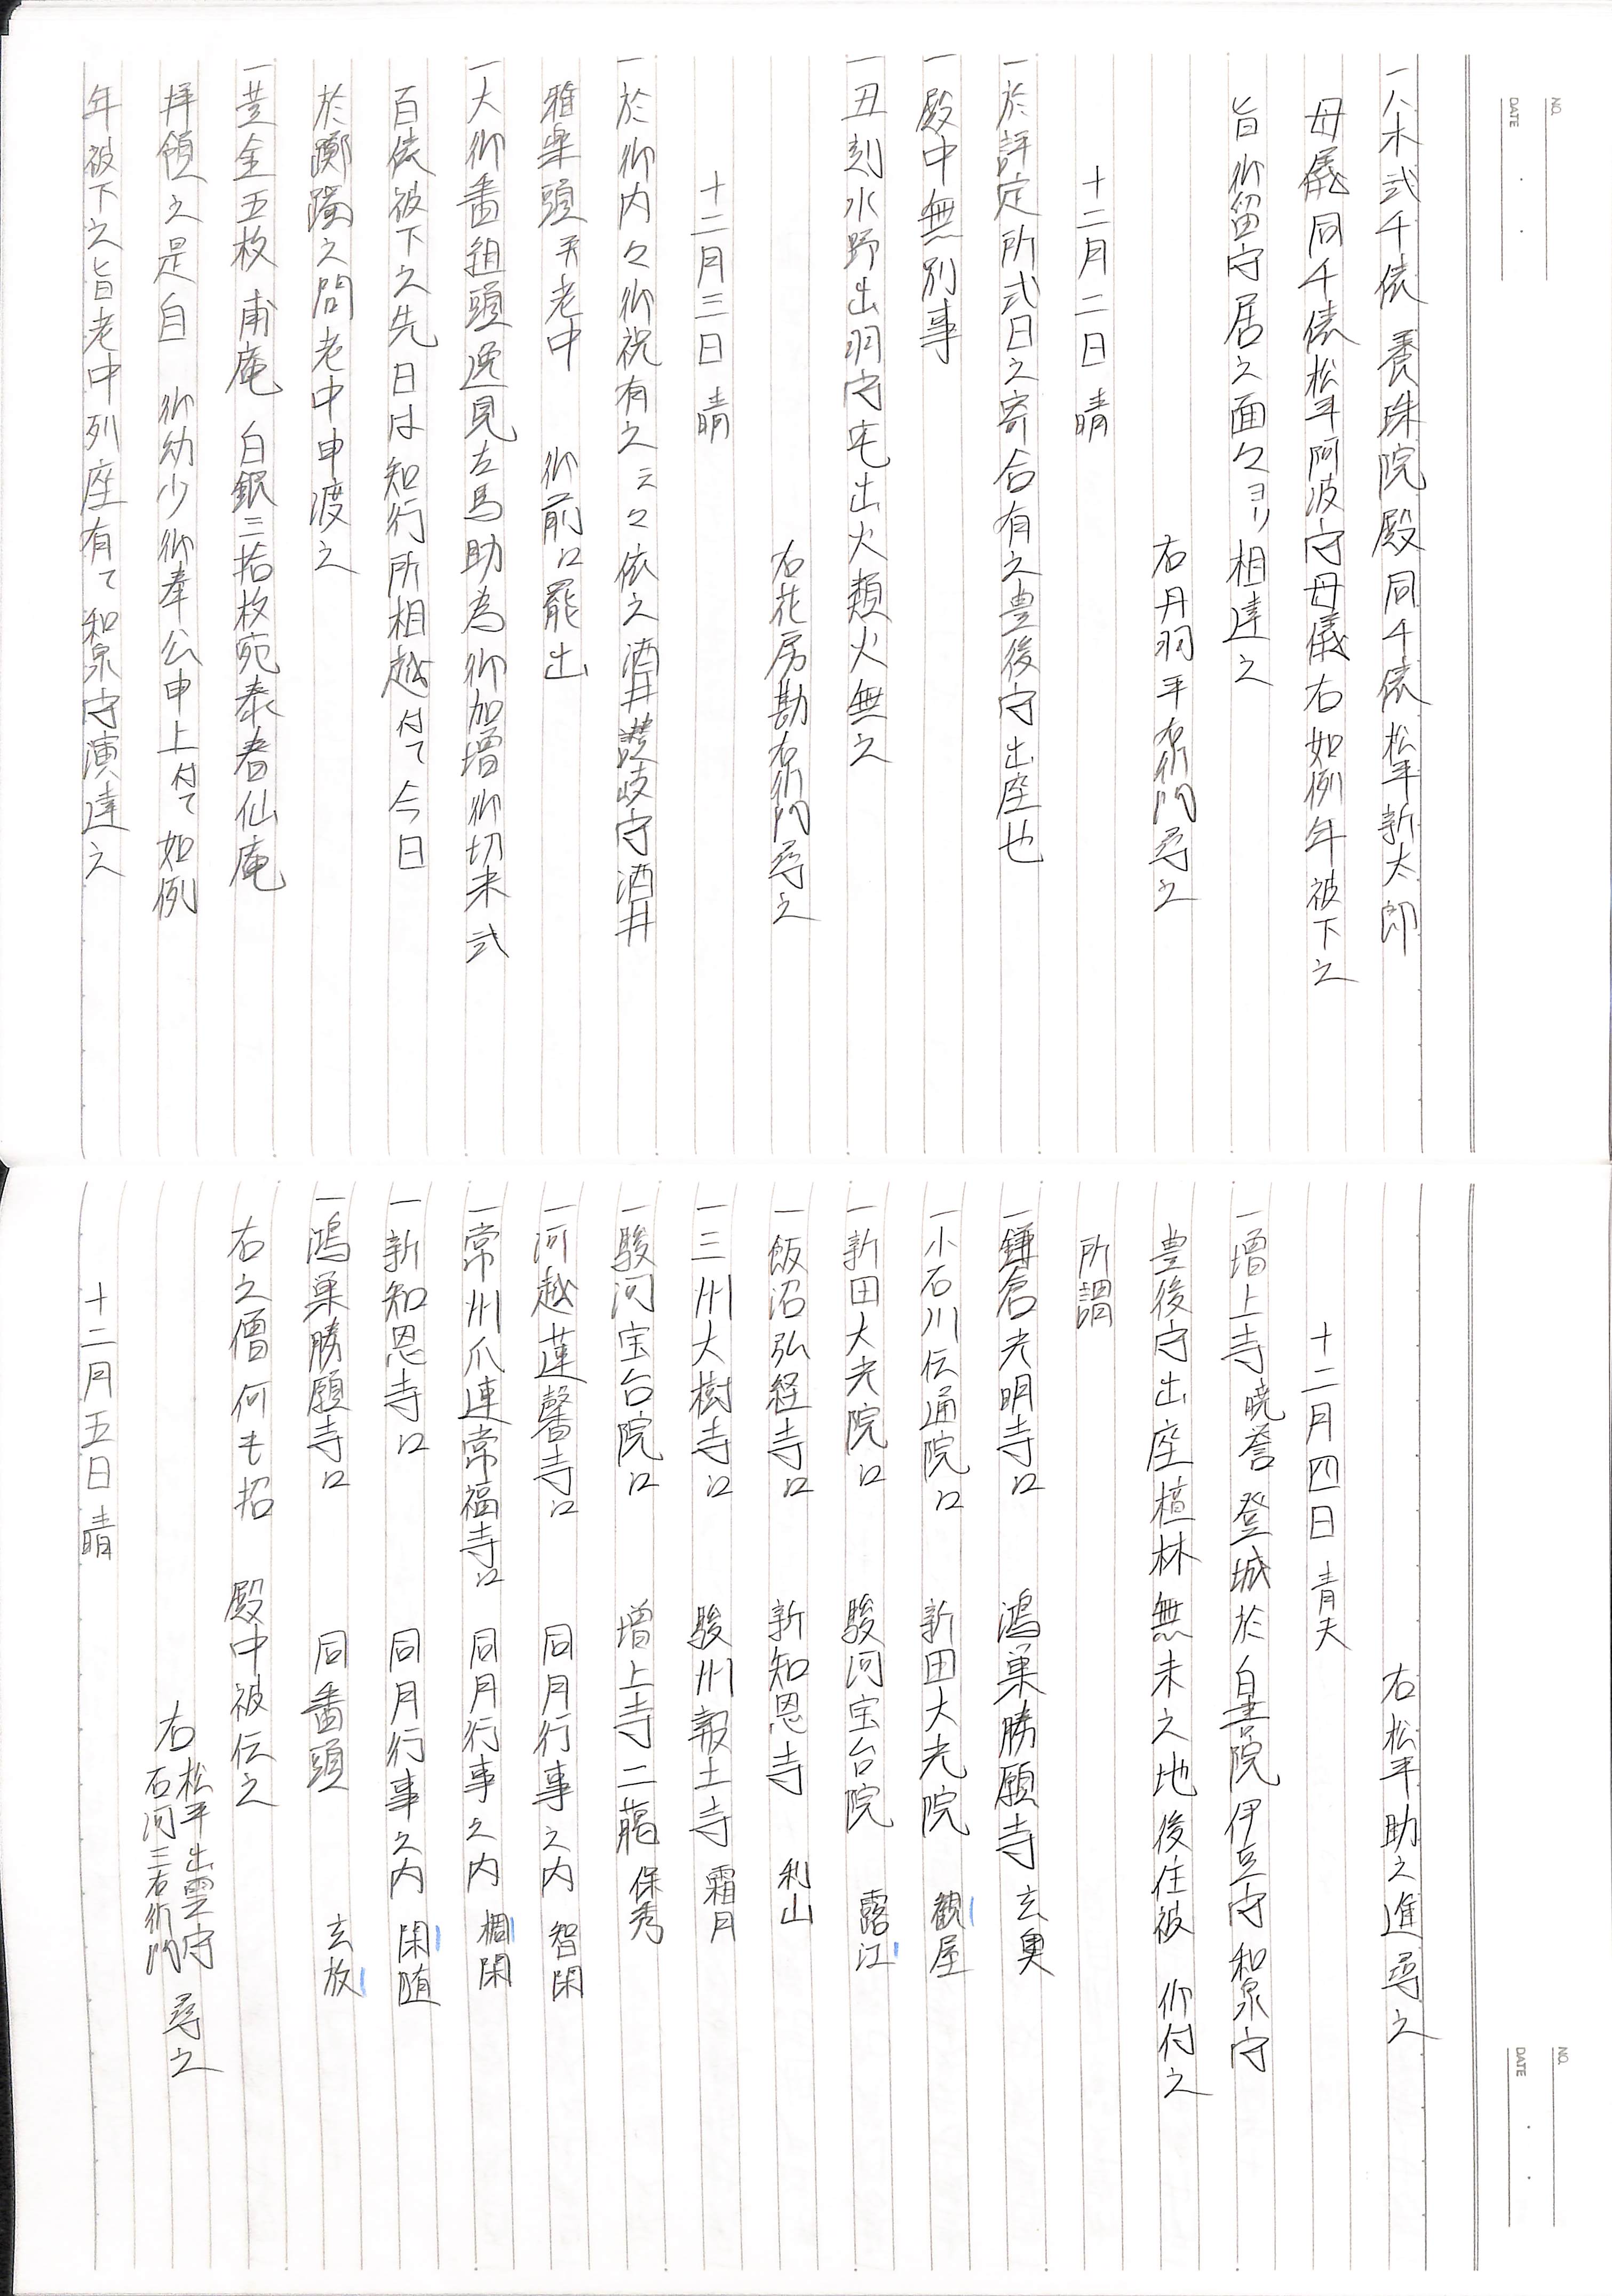 一八木弐千俵 養珠院殿同千俵松平新太郎
母儀同千俵松平阿波守母儀右如例年被下之
旨御留守居之面々ヨリ相達之
右丹羽平右衛門尋之
十二月二日 晴
一於評定所式日之寄合有之豊後守出座也
一殿中無別事
一丑刻水野出羽守宅出火類火無之
右花房勘右衛門尋之
十二月三日 晴
一於御内々御祝有之云々依之酒井讃岐守酒井
雅楽頭并老中 御前江罷出
一大御番組頭逸見左馬助為御加増御切米弐
百俵被下之先日は知行所相越付て今日
於躑躅之間老中申渡之
一黄金五枚 甫庵 白銀三拾枚宛泰春仙庵
拝領之是自 御幼少御奉公申上付て如例
年被下之旨老中列座有て和泉守演達之
右松平助之進尋之
十二月四日 晴天
一増上寺暁誉登城於白書院伊豆守和泉守
豊後守出座檀林無末之地後住被 仰付之
所謂
一鎌倉光明寺江 鴻巣勝願寺 玄奥
一小石川伝通院江 新田大光院 観屋
一新田大光院江 駿河宝台院 露江
一飯沼弘経寺江 新知恩寺 利山
一三州大樹寺江 駿州報土寺 霜月
一駿河宝台院江 増上寺二﨟 保秀
一河越蓮馨寺江 同月行事之内 智閑
一常州爪連常福寺江 同月行事之内 椆閑
一新知恩寺江 同月行事之内 閑随
一鴻巣勝願寺江 同番頭 玄放
右之僧何も招 殿中被伝之
右 松平出雲守
石河三右衛門 尋之
十二月五日 晴
NO.
DATE
NO.
DATE